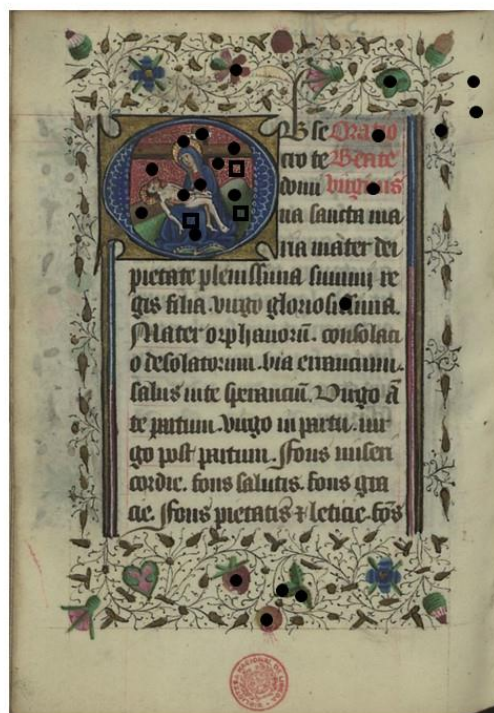 Obse Oratio
cro te Beate
domi virginis
na sancta ma
ria mater dei
pietate plenissima summi re
gis filia. virgo gloriosissima.
Mater orphanorū. consolaci
o desolatorum. via errancium.
salus in te speranciū. Virgo ā
te partum. virgo in partu. vir
go post partum. Fons miseri
cordie. fons salutis. fons gra
cie. Fons pietatis ⁊ leticie. fōs